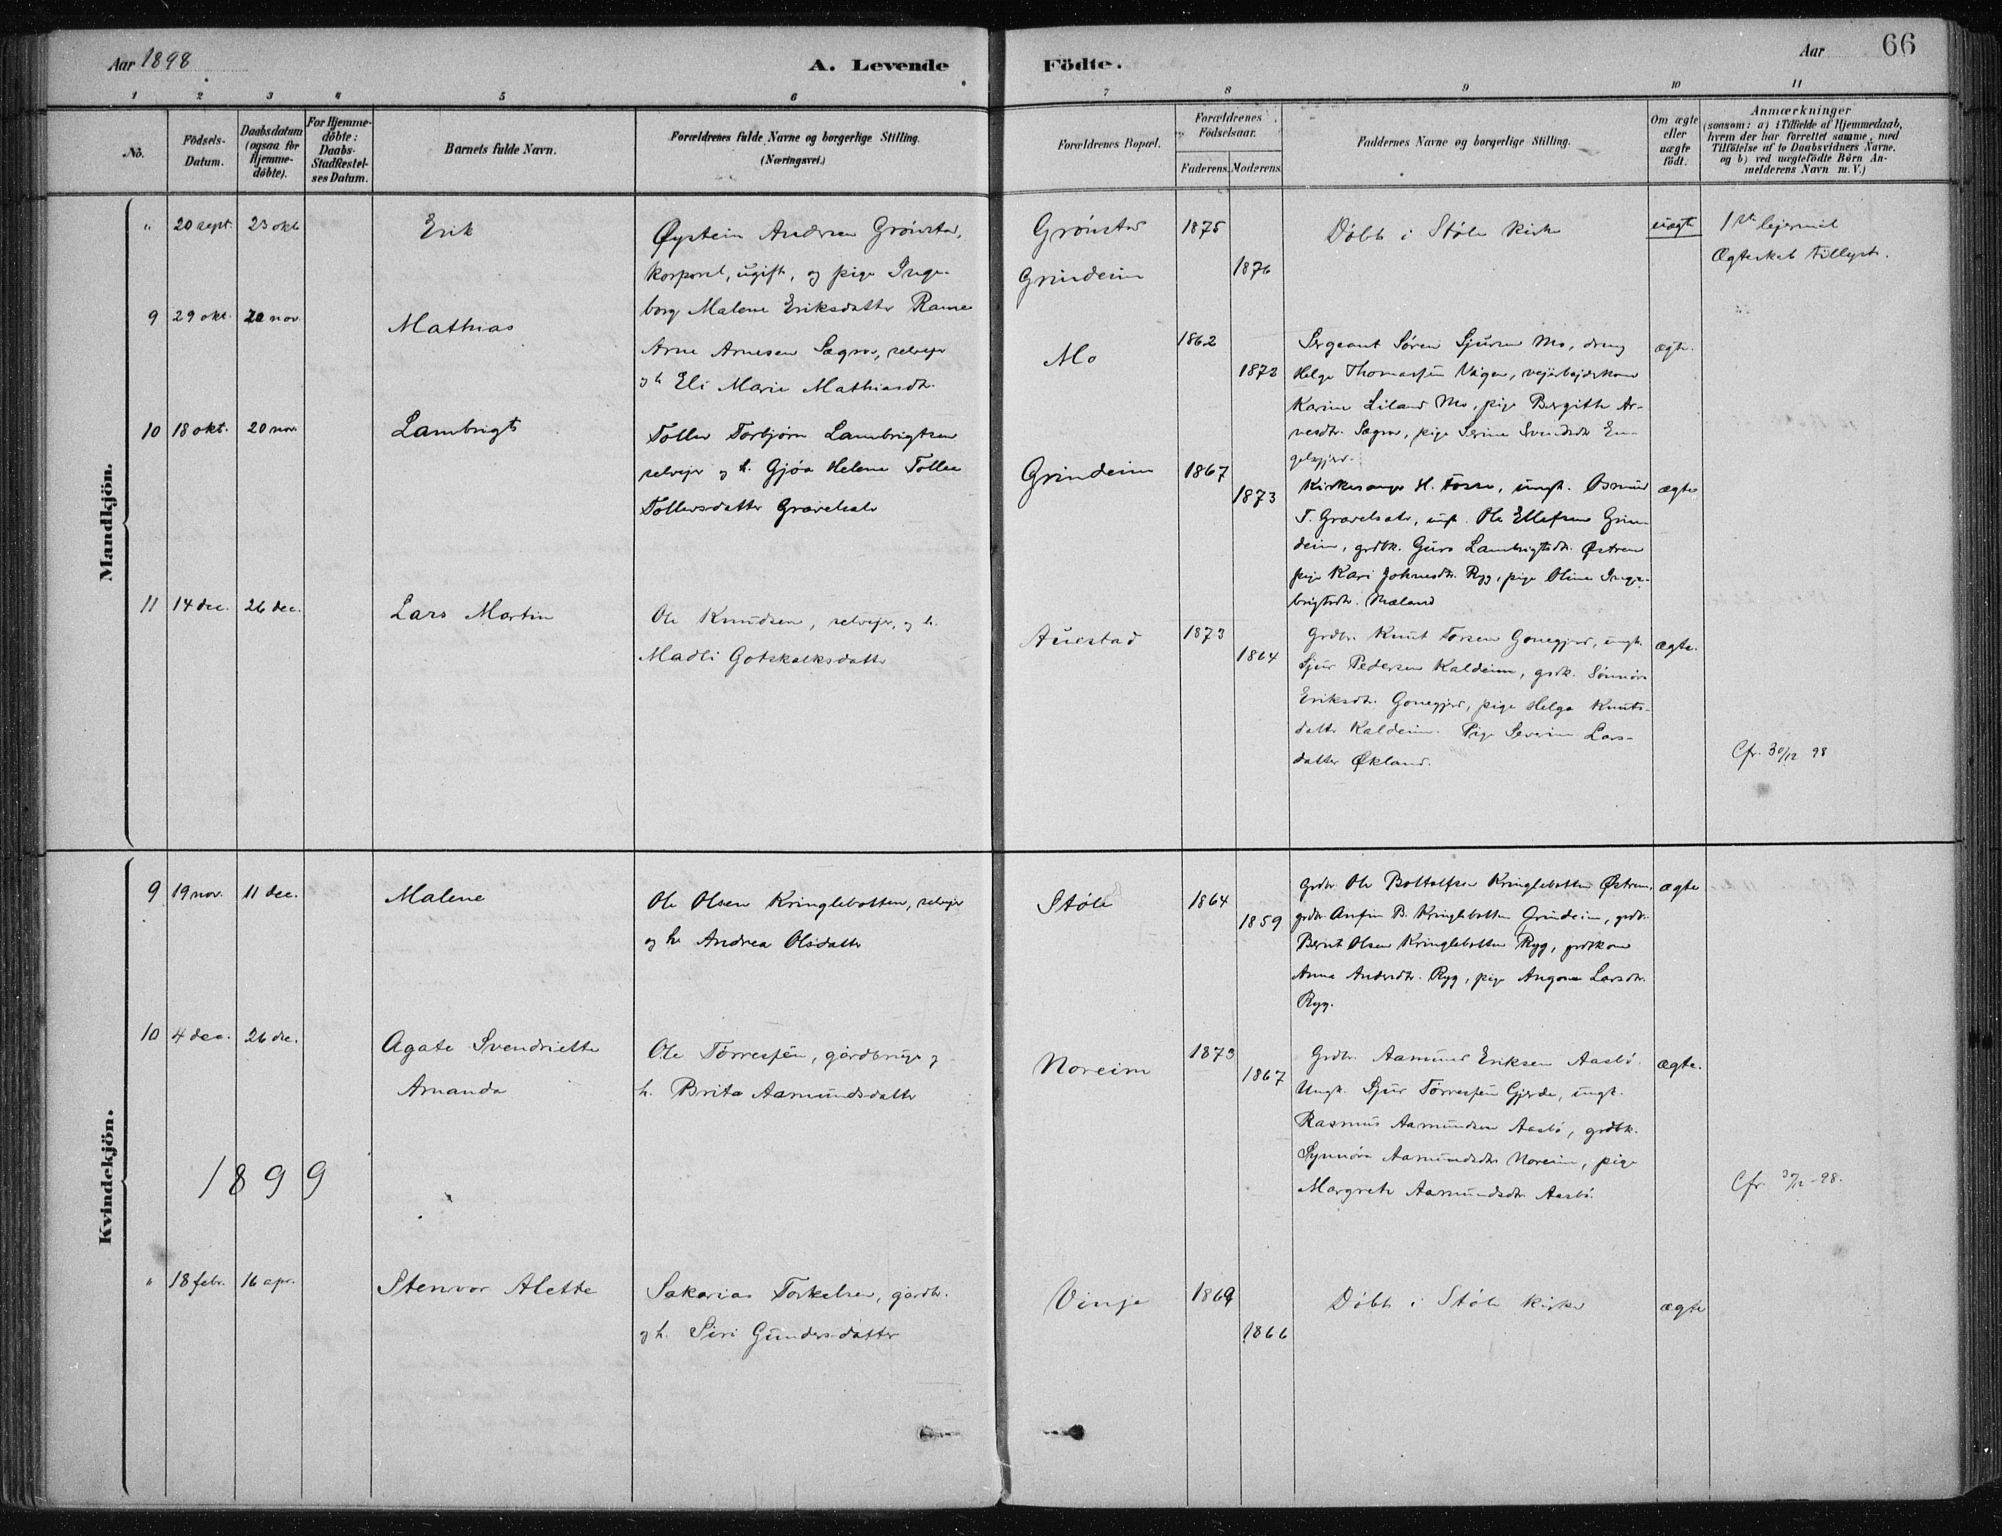 Aar 1898
A. Levende
Födte.
Aar
66
1 2 3 4 5 6 7 8 9 10 11
No.
Födsels-
Datum.
Daabsdatum
(ogsaa for
Hjemme-
döbte).
For Hjemme-
döbte:
Daabs-
Stadfæstel-
ses Datum.
Barnets fulde Navn.
Forældrenes fulde Navne og borgerlige Stilling.
(Næringsvei.)
Forældrenes Bopæl.
Forældrenes
Födselsaar.
Faderens. Moderens.
Faddernes Navne og borgerlige Stilling.
Om ægte
eller
uægte
födt.
Anmærkninger
(saasom: a) i Tilfælde af Hjemmedaab,
hvem der har forrettet samme, med
Tilföielse af to Daabsvidners Navne,
og b) ved uægtefödte Börn An-
melderens Navn m. V.)
Mandkjön.
" 20 sept. 23 okt
Erik
Øystein Andersen Grönstad,
korporal, ugift, og pige Inge-
borg Malene Eriksdatter Rame
Grönstad
Grindeim
1875
1876
Døbt i Støle kirke
uægte
1ste lejermål
Ægteskab tillyst.
9 29 okt. 20 nov.
Mathias
Arne Arnesen Sægrov, selvejer
og h. Eli Marie Mathiasdtr.
Mo
1862
1872
Sergeant Søren Sjursen Mo, dreng
Helge Thomassen Vågen, vejarbejderkone
Karine Liland Mo, pige Bergitte Ar-
nesdtr. Sægrov, pige Serine Svendsdtr. En-
gelsgjerd.
ægte.
10 18 okt. 20 nov.
Lambrigt
Tollev Torbjörn Lambrigtsen
selvejer og h. Gjøa Helene Tollea
Tollevsdatter Gravelsæte
Grindeim
1867
1873
Kirkesanger H. Fosse, ungk. Osmund
T. Gravelsæte, ungk. Ole Ellefsen Grin-
deim, grdbk. Guro Lambrigtsdtr. Østrem
pige Kari Johnesdtr. Ryg, pige Oline Inge-
brigtsdtr. Mæland
ægte
11 14 dec. 26 dec.
Lars Martin
Ole Knudsen, selvejer, og h.
Madli Gotskalksdatter
Auestad
1873
1864
Grdbr. Knut Torsen Gonegjerd, ungk.
Sjur Pedersen Kaldeim, grdk. Sønnøve
Eriksdtr. Gonegjerd, pige Helga Knuts-
datter Kaldeim. Pige Severine Lars-
datter Økland.
ægte.
Cfr. 30/12 98
Kvindekjön.
9 19 nov. 11 dec.
Malene
Ole Olsen Kringlebotten, selvejer
og h. Andrea Olsdatter
Støle
1864
1859
Grdbr. Ole Boltolfsen Kringlebotten Østrem,
grdbr. Anfin B. Kringlebotten Grindeim, grdbr.
Bernt Olsen Kringlebotten Ryg, grdbkone
Anna Andersdtr. Ryg, pige Angona Larsdtr.
Ryg.
ægte
10 4 dec. 26 dec.
Agate Svendriette
Amanda
Ole Tørresen, gårdbruger og
h. Brita Aamundsdatter
Noreim
1873
1867
Grdbr. Aamund Eriksen Aasbö.
Ungk. Sjur Tørresen Gjerde, ungk.
Rasmus Aamundsen Aasbö, grdbk.
Synnöve Aamundsdtr. Noreim, pige
Margrete Aamundsdtr. Aasbö.
ægte.
Cfr. 30/12 -98.
1899
" 18 febr. 16 apr.
Stenvor Alette
Sakarias Torkelsen, gårdbr.
og h. Siri Gundersdatter
Vinje
1869
1866
Døbt i Støle kirke
ægte